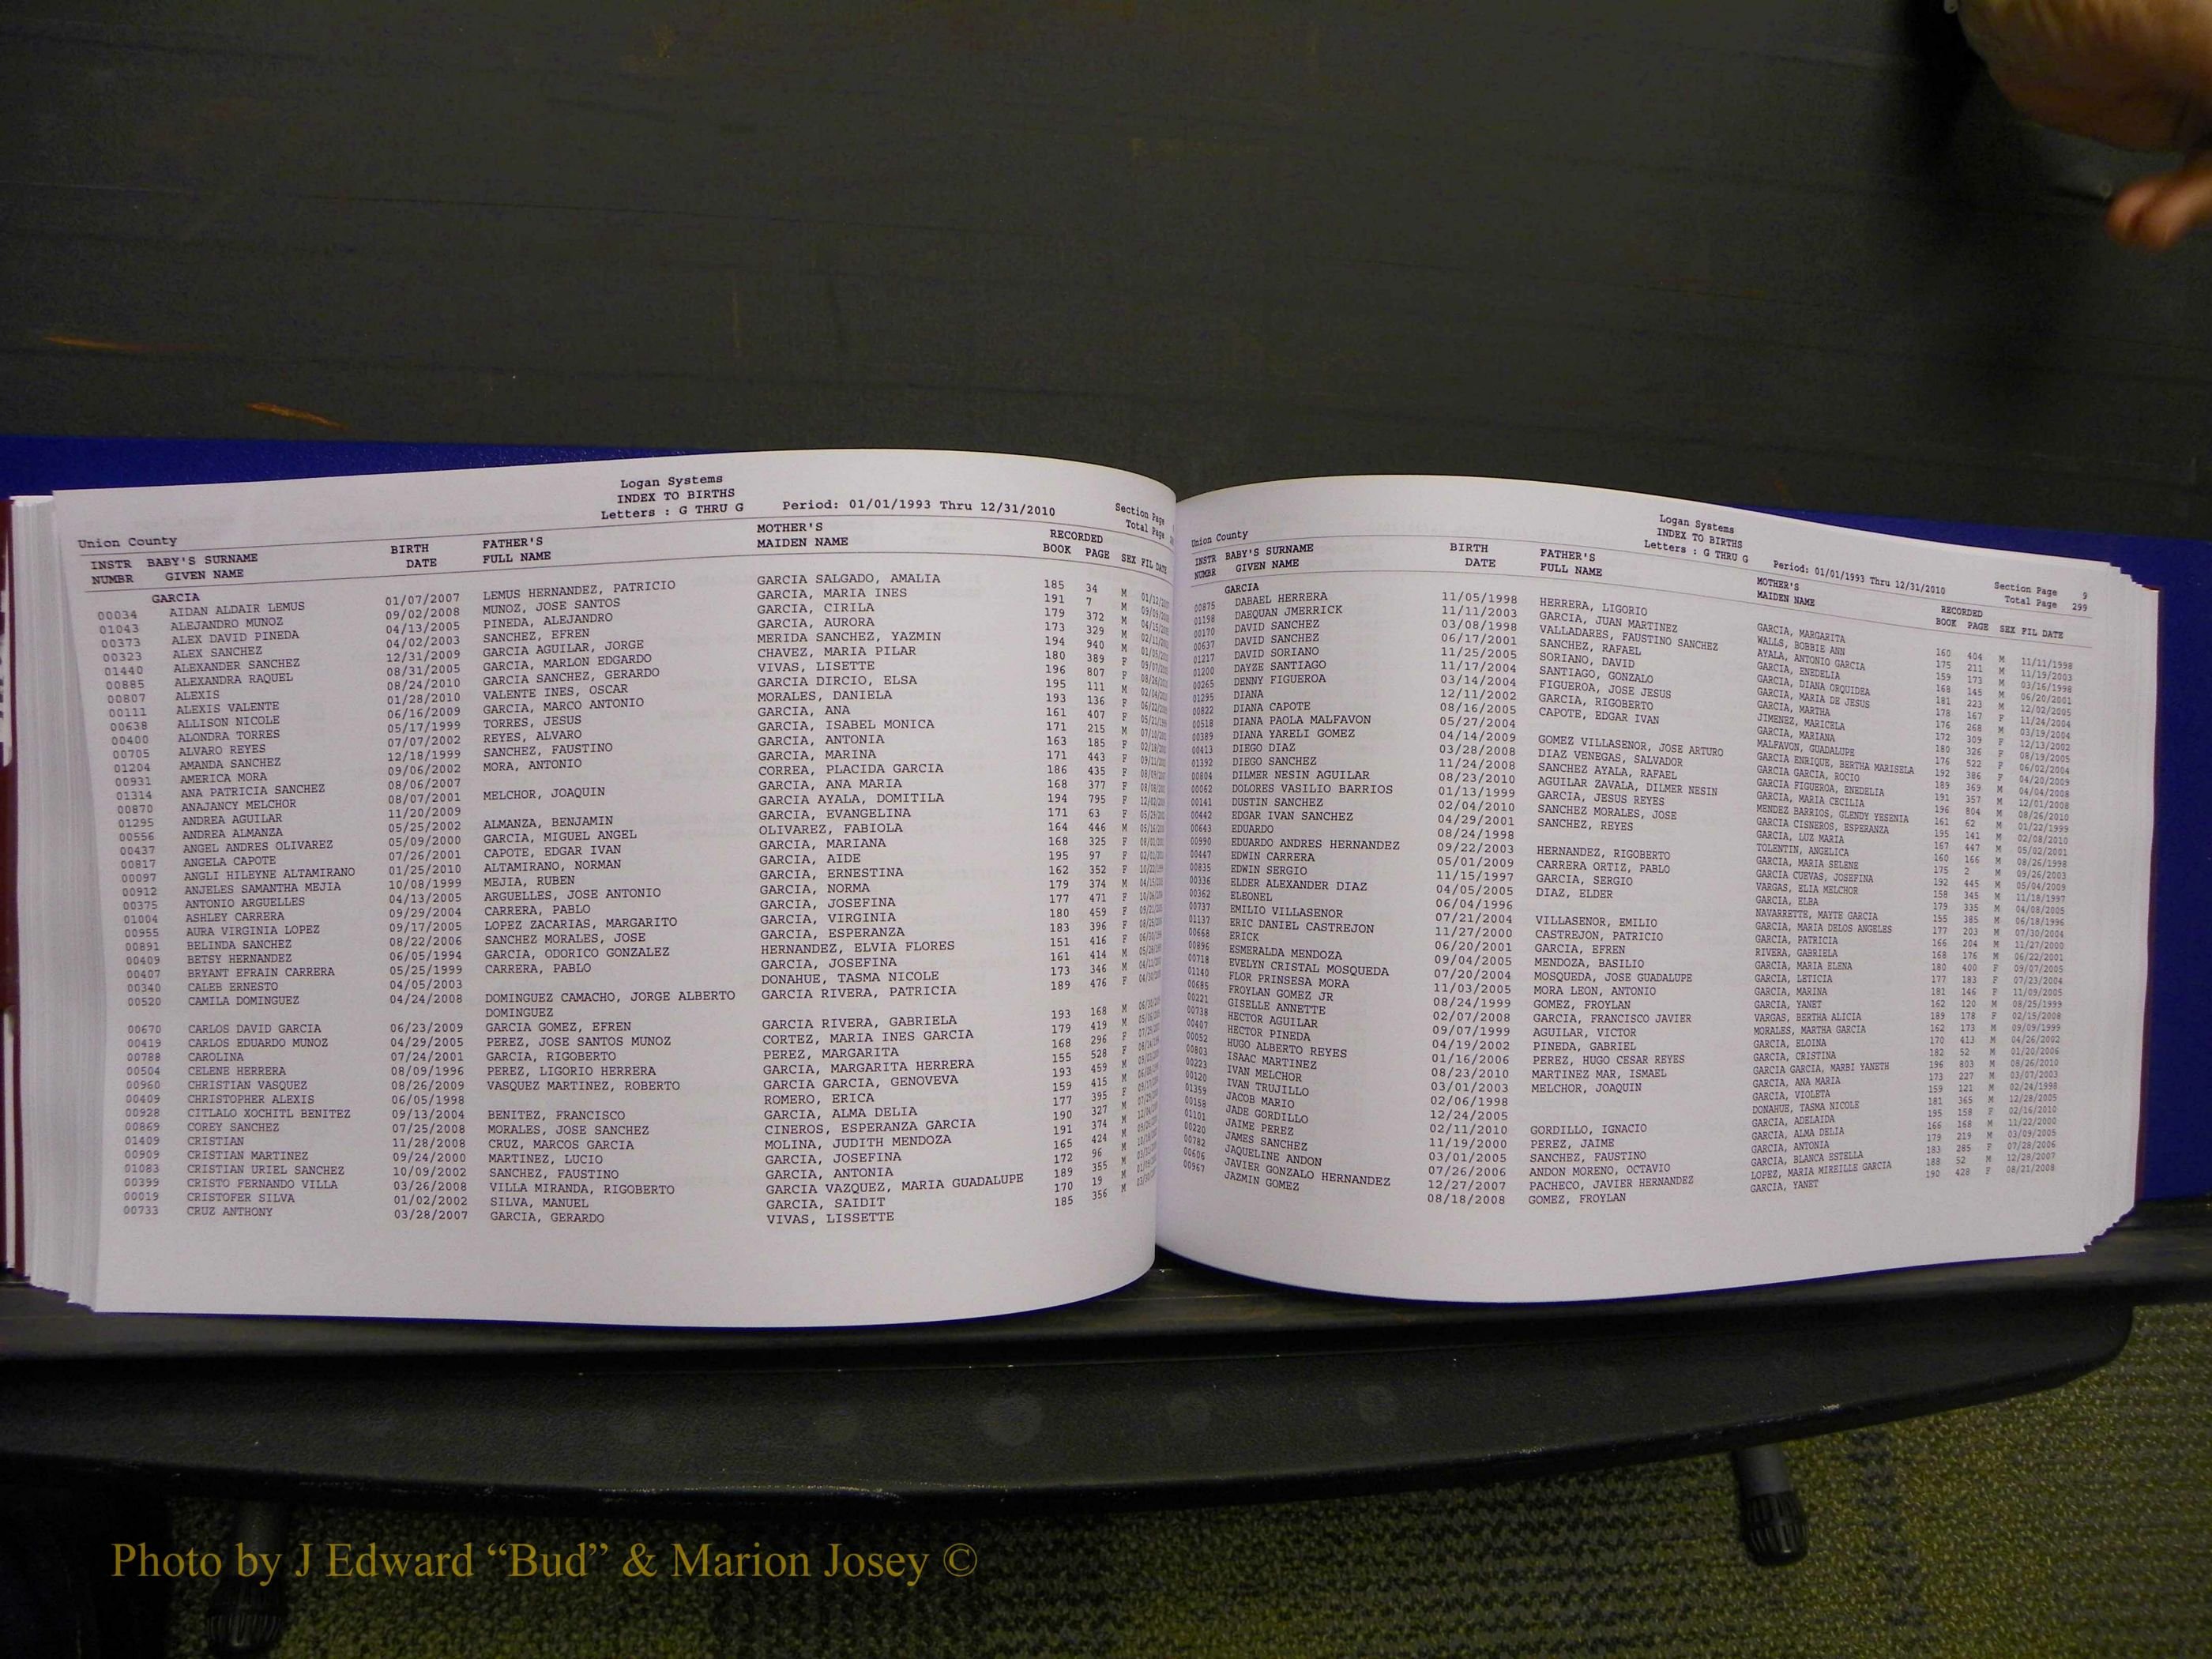 Logan Systems
INDEX TO BIRTHS
Letters : G THRU G Period: 01/01/1993 Thru 12/31/2010
Section Page
Total Page
Union County
INSTR BABY'S SURNAME BIRTH FATHER'S MOTHER'S RECORDED
NUMBR GIVEN NAME DATE FULL NAME MAIDEN NAME BOOK PAGE SEX FIL DATE
GARCIA
00034 AIDAN ALDAIR LEMUS 01/07/2007 LEMUS HERNANDEZ, PATRICIO GARCIA SALGADO, AMALIA 185 34 M
01043 ALEJANDRO MUNOZ 09/02/2008 MUNOZ, JOSE SANTOS GARCIA, MARIA INES 191 7 M
00373 ALEX DAVID PINEDA 04/13/2005 PINEDA, ALEJANDRO GARCIA, CIRILA 179 372 M
00323 ALEX SANCHEZ 04/02/2003 SANCHEZ, EFREN GARCIA, AURORA 173 329 M
01440 ALEXANDER SANCHEZ 12/31/2009 GARCIA AGUILAR, JORGE MERIDA SANCHEZ, YAZMIN 194 940 M
00885 ALEXANDRA RAQUEL 08/31/2005 GARCIA, MARLON EDGARDO CHAVEZ, MARIA PILAR 180 389 F
00807 ALEXIS 08/24/2010 GARCIA SANCHEZ, GERARDO VIVAS, LISETTE 196 807 F
00111 ALEXIS VALENTE 01/28/2010 VALENTE INES, OSCAR GARCIA DIRCIO, ELSA 195 111 M
00638 ALLISON NICOLE 06/16/2009 GARCIA, MARCO ANTONIO MORALES, DANIELA 193 136 F
00400 ALONDRA TORRES 05/17/1999 TORRES, JESUS GARCIA, ANA 161 407 F
00705 ALVARO REYES 07/07/2002 REYES, ALVARO GARCIA, ISABEL MONICA 171 215 M
01204 AMANDA SANCHEZ 12/18/1999 SANCHEZ, FAUSTINO GARCIA, ANTONIA 163 185 F
00931 AMERICA MORA 09/06/2002 MORA, ANTONIO GARCIA, MARINA 171 443 F
01314 ANA PATRICIA SANCHEZ 08/06/2007 CORREA, PLACIDA GARCIA 186 435 F
00870 ANAJANCY MELCHOR 08/07/2001 MELCHOR, JOAQUIN GARCIA, ANA MARIA 168 377 F
01295 ANDREA AGUILAR 11/20/2009 GARCIA AYALA, DOMITILA 194 795 F
00556 ANDREA ALMANZA 05/25/2002 ALMANZA, BENJAMIN GARCIA, EVANGELINA 171 63 F
00437 ANGEL ANDRES OLIVAREZ 05/09/2000 GARCIA, MIGUEL ANGEL OLIVAREZ, FABIOLA 164 446 M
00817 ANGELA CAPOTE 07/26/2001 CAPOTE, EDGAR IVAN GARCIA, MARIANA 168 325 F
00097 ANGLI HILEYNE ALTAMIRANO 01/25/2010 ALTAMIRANO, NORMAN GARCIA, AIDE 195 97 F
00912 ANJELES SAMANTHA MEJIA 10/08/1999 MEJIA, RUBEN GARCIA, ERNESTINA 162 352 F
00375 ANTONIO ARGUELLES 04/13/2005 ARGUELLES, JOSE ANTONIO GARCIA, NORMA 179 374 M
01004 ASHLEY CARRERA 09/29/2004 CARRERA, PABLO GARCIA, JOSEFINA 177 471 F
00955 AURA VIRGINIA LOPEZ 09/17/2005 LOPEZ ZACARIAS, MARGARITO GARCIA, VIRGINIA 180 459 F
00891 BELINDA SANCHEZ 08/22/2006 SANCHEZ MORALES, JOSE GARCIA, ESPERANZA 183 396 F
00409 BETSY HERNANDEZ 06/05/1994 GARCIA, ODORICO GONZALEZ HERNANDEZ, ELVIA FLORES 151 416 F
00407 BRYANT EFRAIN CARRERA 05/25/1999 CARRERA, PABLO GARCIA, JOSEFINA 161 414 M
00340 CALEB ERNESTO 04/05/2003 DONAHUE, TASMA NICOLE 173 346 M
00520 CAMILA DOMINGUEZ 04/24/2008 DOMINGUEZ CAMACHO, JORGE ALBERTO GARCIA RIVERA, PATRICIA 189 476 F
DOMINGUEZ
00670 CARLOS DAVID GARCIA 06/23/2009 GARCIA GOMEZ, EFREN GARCIA RIVERA, GABRIELA 193 168 M
00419 CARLOS EDUARDO MUNOZ 04/29/2005 PEREZ, JOSE SANTOS MUNOZ CORTEZ, MARIA INES GARCIA 179 419 M
00788 CAROLINA 07/24/2001 GARCIA, RIGOBERTO PEREZ, MARGARITA 168 296 F
00504 CELENE HERRERA 08/09/1996 PEREZ, LIGORIO HERRERA GARCIA, MARGARITA HERRERA 155 528 F
00960 CHRISTIAN VASQUEZ 08/26/2009 VASQUEZ MARTINEZ, ROBERTO GARCIA GARCIA, GENOVEVA 193 459 M
00409 CHRISTOPHER ALEXIS 06/05/1998 ROMERO, ERICA 159 415 M
00928 CITLALO XOCHITL BENITEZ 09/13/2004 BENITEZ, FRANCISCO GARCIA, ALMA DELIA 177 395 F
00869 COREY SANCHEZ 07/25/2008 MORALES, JOSE SANCHEZ CINEROS, ESPERANZA GARCIA 190 327 M
01409 CRISTIAN 11/28/2008 CRUZ, MARCOS GARCIA MOLINA, JUDITH MENDOZA 191 374 M
00909 CRISTIAN MARTINEZ 09/24/2000 MARTINEZ, LUCIO GARCIA, JOSEFINA 165 424 M
01083 CRISTIAN URIEL SANCHEZ 10/09/2002 SANCHEZ, FAUSTINO GARCIA, ANTONIA 172 96 M
00399 CRISTO FERNANDO VILLA 03/26/2008 VILLA MIRANDA, RIGOBERTO GARCIA VAZQUEZ, MARIA GUADALUPE 189 355 M
00019 CRISTOFER SILVA 01/02/2002 SILVA, MANUEL GARCIA, SAIDIT 170 19 M
00733 CRUZ ANTHONY 03/28/2007 GARCIA, GERARDO VIVAS, LISSETTE 185 356 M
Logan Systems
INDEX TO BIRTHS
Letters : G THRU G Period: 01/01/1993 Thru 12/31/2010
Section Page 9
Total Page 299
Union County
INSTR BABY'S SURNAME BIRTH FATHER'S MOTHER'S RECORDED
NUMBR GIVEN NAME DATE FULL NAME MAIDEN NAME BOOK PAGE SEX FIL DATE
GARCIA
00875 DABAEL HERRERA 11/05/1998 HERRERA, LIGORIO GARCIA, MARGARITA 160 404 M 11/11/1998
01198 DAEQUAN JMERRICK 11/11/2003 GARCIA, JUAN MARTINEZ WALLS, BOBBIE ANN 175 211 M 11/19/2003
00170 DAVID SANCHEZ 03/08/1998 VALLADARES, FAUSTINO SANCHEZ AYALA, ANTONIO GARCIA 159 173 M 03/16/1998
00637 DAVID SANCHEZ 06/17/2001 SANCHEZ, RAFAEL GARCIA, ENEDELIA 168 145 M 06/20/2001
01217 DAVID SORIANO 11/25/2005 SORIANO, DAVID GARCIA, DIANA ORQUIDEA 181 223 M 12/02/2005
01200 DAYZE SANTIAGO 11/17/2004 SANTIAGO, GONZALO GARCIA, MARIA DE JESUS 178 167 F 11/24/2004
00265 DENNY FIGUEROA 03/14/2004 FIGUEROA, JOSE JESUS GARCIA, MARTHA 176 268 M 03/19/2004
01295 DIANA 12/11/2002 GARCIA, RIGOBERTO JIMENEZ, MARICELA 172 309 F 12/13/2002
00822 DIANA CAPOTE 08/16/2005 CAPOTE, EDGAR IVAN GARCIA, MARIANA 180 326 F 08/19/2005
00518 DIANA PAOLA MALFAVON 05/27/2004 MALFAVON, GUADALUPE 176 522 F 06/02/2004
00389 DIANA YARELI GOMEZ 04/14/2009 GOMEZ VILLASENOR, JOSE ARTURO GARCIA ENRIQUE, BERTHA MARISELA 192 386 F 04/20/2009
00413 DIEGO DIAZ 03/28/2008 DIAZ VENEGAS, SALVADOR GARCIA GARCIA, ROCIO 189 369 M 04/04/2008
01392 DIEGO SANCHEZ 11/24/2008 SANCHEZ AYALA, RAFAEL GARCIA FIGUEROA, ENEDELIA 191 357 M 12/01/2008
00804 DILMER NESIN AGUILAR 08/23/2010 AGUILAR ZAVALA, DILMER NESIN GARCIA, MARIA CECILIA 196 804 M 08/26/2010
00062 DOLORES VASILIO BARRIOS 01/13/1999 GARCIA, JESUS REYES MENDEZ BARRIOS, GLENDY YESENIA 161 62 M 01/22/1999
00141 DUSTIN SANCHEZ 02/04/2010 SANCHEZ MORALES, JOSE GARCIA CISNEROS, ESPERANZA 195 141 M 02/08/2010
00442 EDGAR IVAN SANCHEZ 04/29/2001 SANCHEZ, REYES GARCIA, LUZ MARIA 167 447 M 05/02/2001
00643 EDUARDO 08/24/1998 TOLENTIN, ANGELICA 160 166 M 08/26/1998
00990 EDUARDO ANDRES HERNANDEZ 09/22/2003 HERNANDEZ, RIGOBERTO GARCIA, MARIA SELENE 175 2 M 09/26/2003
00447 EDWIN CARRERA 05/01/2009 CARRERA ORTIZ, PABLO GARCIA CUEVAS, JOSEFINA 192 445 M 05/04/2009
00835 EDWIN SERGIO 11/15/1997 GARCIA, SERGIO VARGAS, ELIA MELCHOR 158 345 M 11/18/1997
00336 ELDER ALEXANDER DIAZ 04/05/2005 DIAZ, ELDER GARCIA, ELBA 179 335 M 04/08/2005
00362 ELEONEL 06/04/1996 NAVARRETTE, MAYTE GARCIA 155 385 M 06/18/1996
00737 EMILIO VILLASENOR 07/21/2004 VILLASENOR, EMILIO GARCIA, MARIA DELOS ANGELES 177 203 M 07/30/2004
01137 ERIC DANIEL CASTREJON 11/27/2000 CASTREJON, PATRICIO GARCIA, PATRICIA 166 204 M 11/27/2000
00668 ERICK 06/20/2001 GARCIA, EFREN RIVERA, GABRIELA 168 176 M 06/22/2001
00896 ESMERALDA MENDOZA 09/04/2005 MENDOZA, BASILIO GARCIA, MARIA ELENA 180 400 F 09/07/2005
00718 EVELYN CRISTAL MOSQUEDA 07/20/2004 MOSQUEDA, JOSE GUADALUPE GARCIA, LETICIA 177 183 F 07/23/2004
01140 FLOR PRINSESA MORA 11/03/2005 MORA LEON, ANTONIO GARCIA, MARINA 181 146 F 11/09/2005
00685 FROYLAN GOMEZ JR 08/24/1999 GOMEZ, FROYLAN GARCIA, YANET 162 120 M 08/25/1999
00221 GISELLE ANNETTE 02/07/2008 GARCIA, FRANCISCO JAVIER VARGAS, BERTHA ALICIA 189 178 F 02/15/2008
00738 HECTOR AGUILAR 09/07/1999 AGUILAR, VICTOR MORALES, MARTHA GARCIA 162 173 M 09/09/1999
00407 HECTOR PINEDA 04/19/2002 PINEDA, GABRIEL GARCIA, ELOINA 170 413 M 04/26/2002
00052 HUGO ALBERTO REYES 01/16/2006 PEREZ, HUGO CESAR REYES GARCIA, CRISTINA 182 52 M 01/20/2006
00803 ISAAC MARTINEZ 08/23/2010 MARTINEZ MAR, ISMAEL GARCIA GARCIA, MARBI YANETH 196 803 M 08/26/2010
00223 IVAN MELCHOR 03/01/2003 MELCHOR, JOAQUIN GARCIA, ANA MARIA 173 227 M 03/07/2003
00120 IVAN TRUJILLO 02/06/1998 GARCIA, VIOLETA 159 121 M 02/24/1998
01359 JACOB MARIO 12/24/2005 DONAHUE, TASMA NICOLE 181 365 M 12/28/2005
00158 JADE GORDILLO 02/11/2010 GORDILLO, IGNACIO GARCIA, ADELAIDA 195 158 F 02/16/2010
01101 JAIME PEREZ 11/19/2000 PEREZ, JAIME GARCIA, ALMA DELIA 166 168 M 11/22/2000
00220 JAMES SANCHEZ 03/01/2005 SANCHEZ, FAUSTINO GARCIA, ANTONIA 179 219 M 03/09/2005
00782 JAQUELINE ANDON 07/26/2006 ANDON MORENO, OCTAVIO GARCIA, BLANCA ESTELLA 183 285 F 07/28/2006
00606 JAVIER GONZALO HERNANDEZ 12/27/2007 PACHECO, JAVIER HERNANDEZ LOPEZ, MARIA MIREILLE GARCIA 188 52 M 12/28/2007
00967 JAZMIN GOMEZ 08/18/2008 GOMEZ, FROYLAN GARCIA, YANET 190 428 F 08/21/2008
Photo by J Edward “Bud” & Marion Josey ©